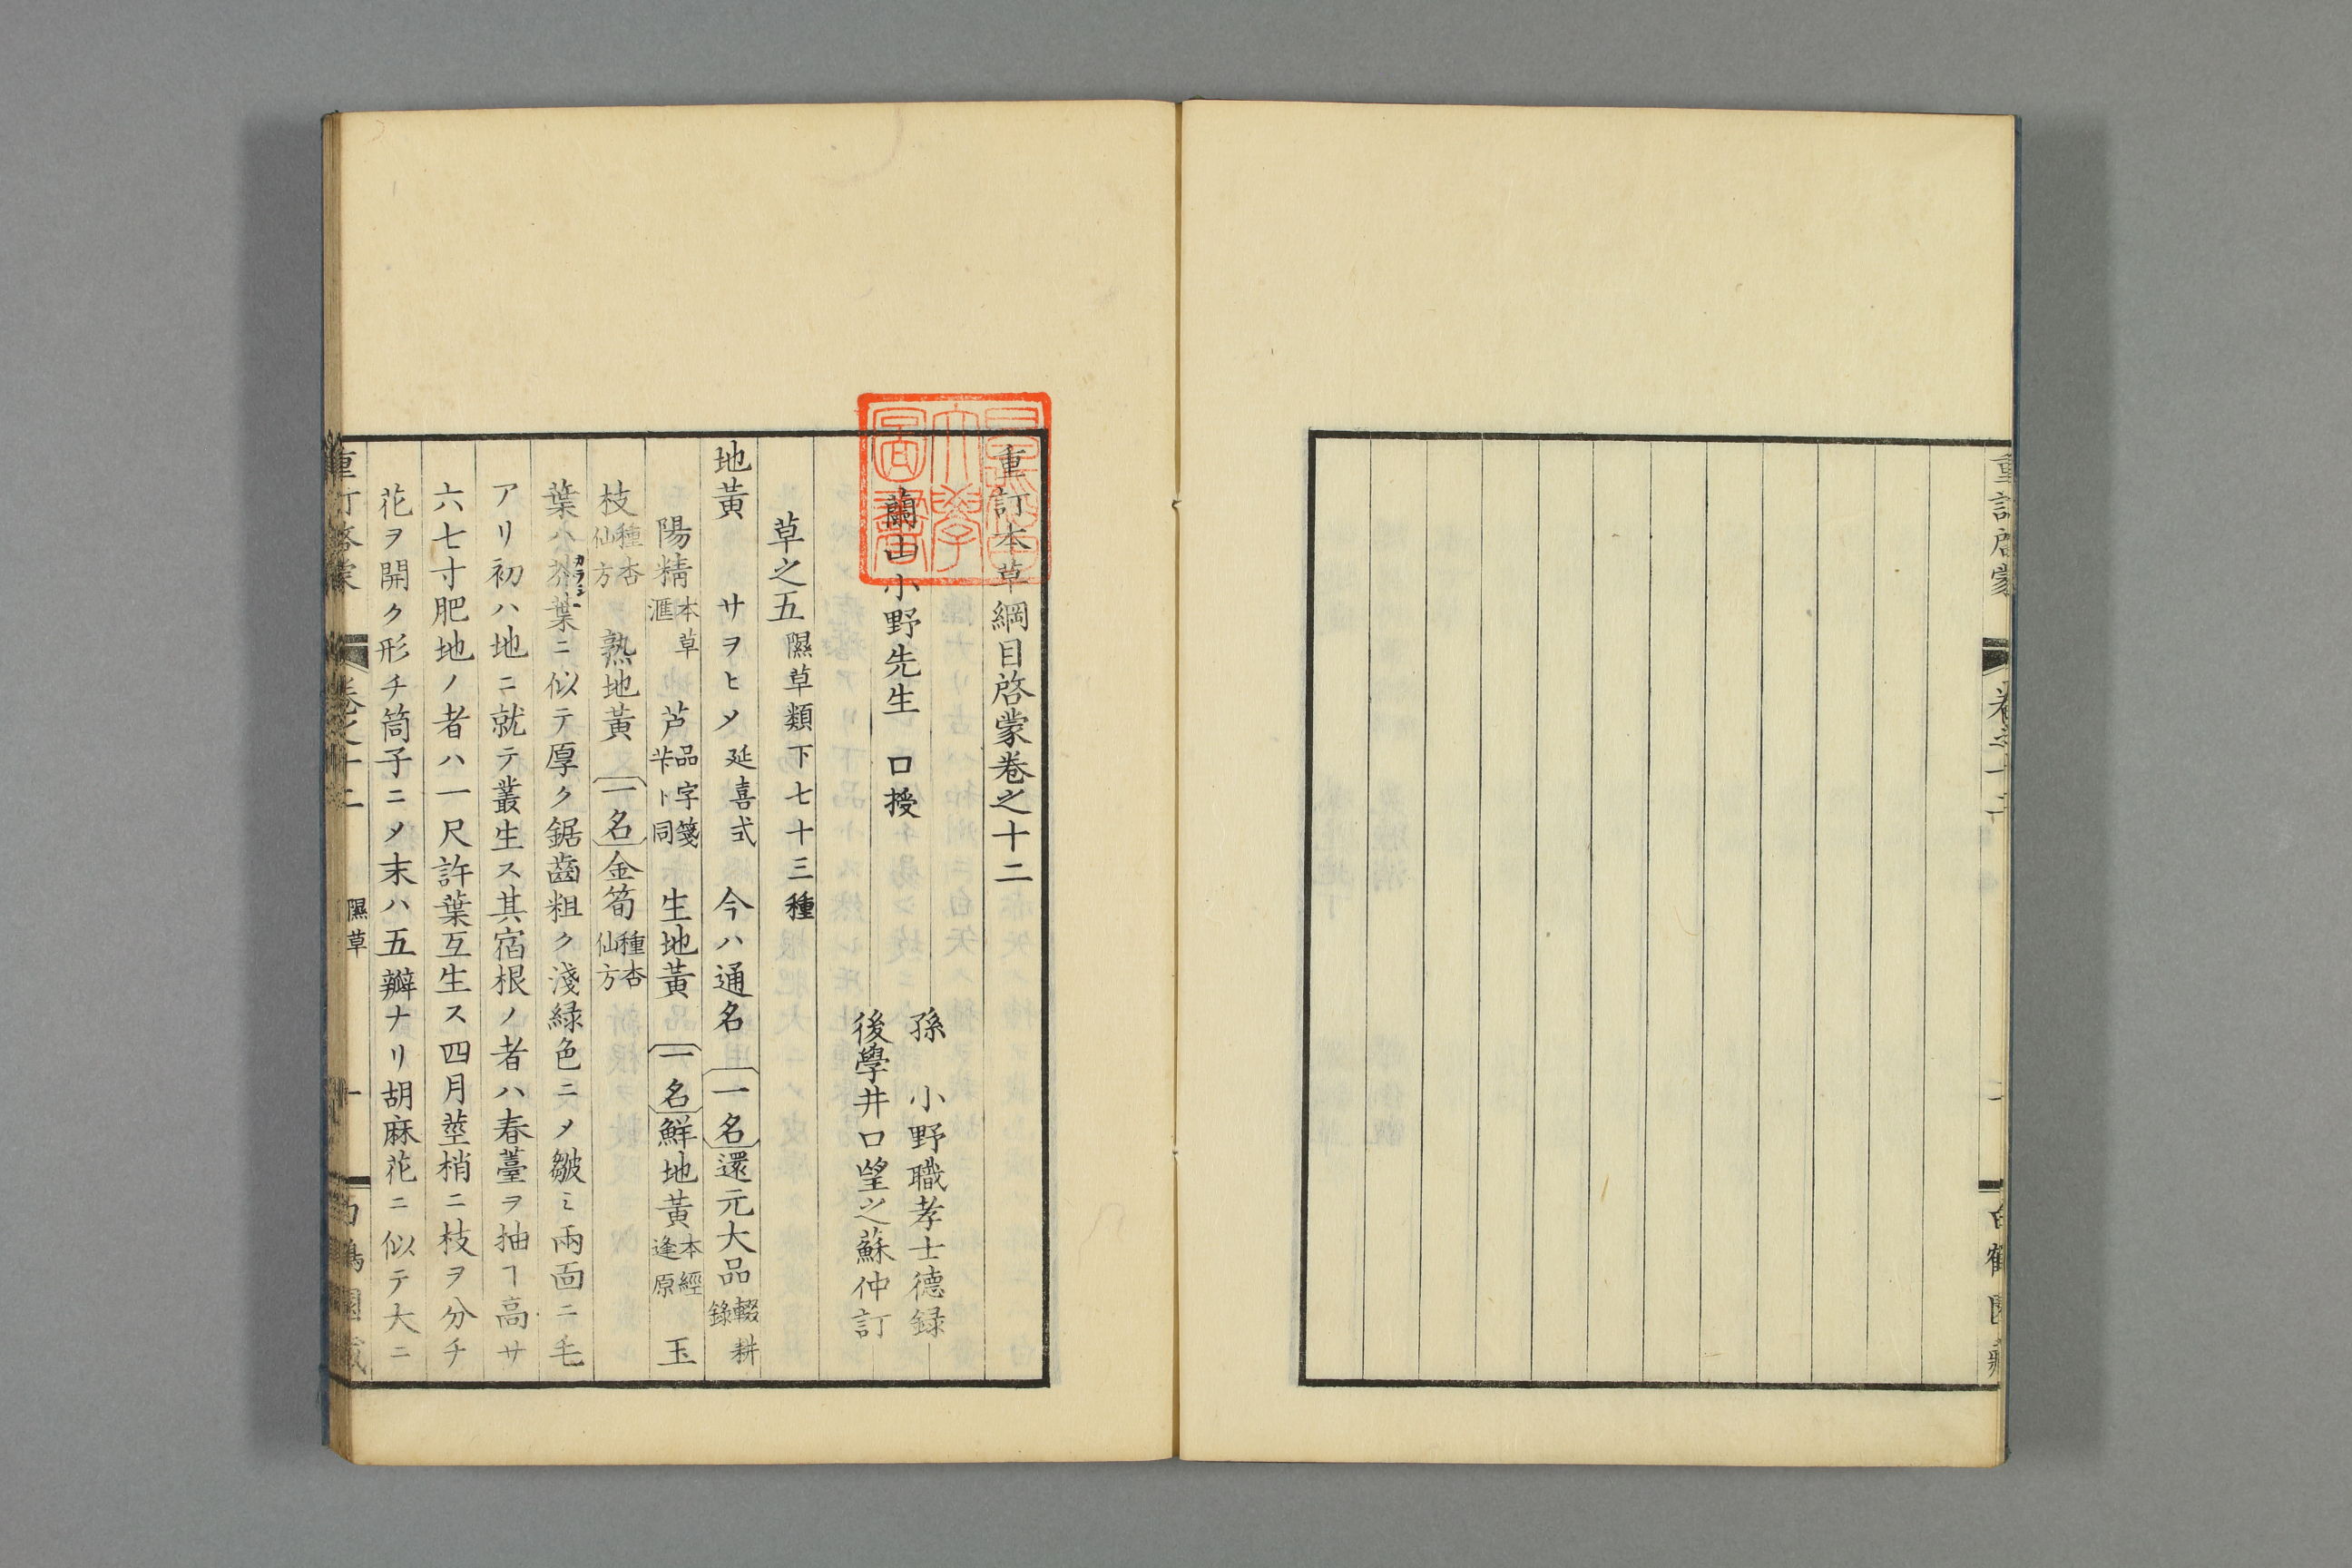 重訂本草綱目啓蒙卷之十二
蘭山小野先生 口授
孫 小野職孝士德録
後學井口望之蘇仲訂
草之五 隰草類下七十三種
地黃 サヲヒメ 延喜式 今ハ通名 一名 還元大品 輟耕錄
陽精 本草滙 芦 品字箋 芐ト同 生地黃 一名 鮮地黃 本經逢原 玉
枝 種杏仙方 熟地黃 一名 金筍 種杏仙方
葉ハ芥葉ニ似テ厚ク鋸齒粗ク淺緑色ニメ皺ミ兩面ニ毛
カラシ
アリ初ハ地ニ就テ叢生ス其宿根ノ者ハ春薹ヲ抽ヿ高サ
六七寸肥地ノ者ハ一尺許葉互生ス四月莖梢ニ枝ヲ分チ
花ヲ開ク形チ筒子ニメ末ハ五瓣ナリ胡麻花ニ似テ大ニ
重訂啓蒙 卷之十二 隰草 一